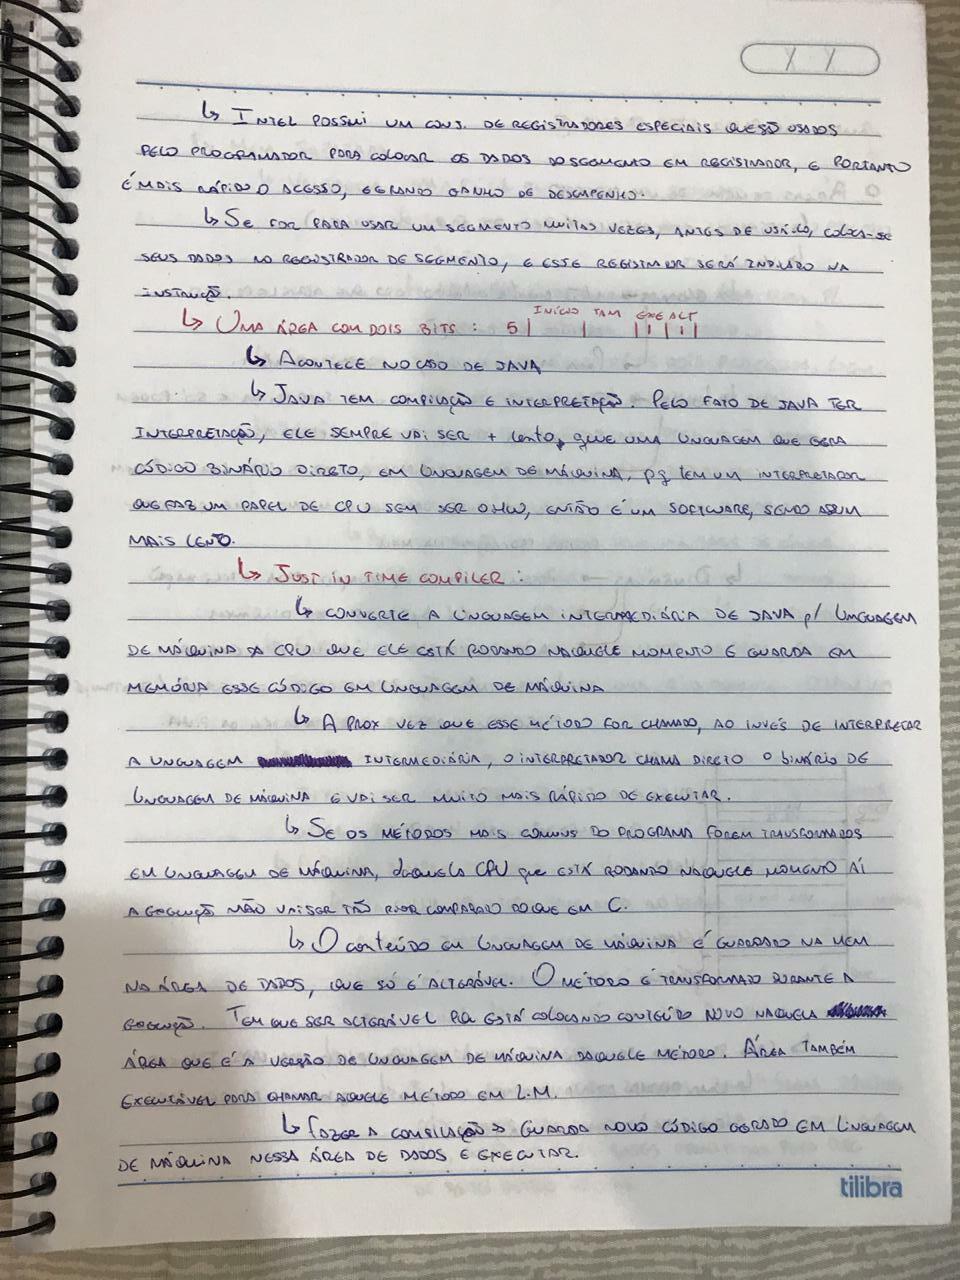 ↳ INTEL POSSUI UM CONJ. DE REGISTRADORES ESPECIAIS QUE SÃO USADOS
PELO PROGRAMADOR PARA COLOCAR OS DADOS DO SEGMENTO EM REGISTRADOR, E PORTANTO
É MAIS RÁPIDO O ACESSO, E GRANDE GANHO DE DESEMPENHO.
↳ SE FOR PARA USAR UM SEGMENTO MUITAS VEZES, ANTES DE USÁ-LO, COLOCA-SE
SEUS DADOS NO REGISTRADOR DE SEGMENTO, E ESSE REGISTRADOR SERÁ INDICADO NA
INSTRUÇÃO.
INÍCIO TAM EXE ALT
↳ UMA ÁREA COM DOIS BITS : 5
↳ ACONTECE NO CASO DE JAVA
↳ JAVA TEM COMPILAÇÃO E INTERPRETAÇÃO. PELO FATO DE JAVA TER
INTERPRETAÇÃO, ELE SEMPRE VAI SER + lento, que UMA LINGUAGEM QUE GERA
CÓDIGO BINÁRIO DIRETO, EM LINGUAGEM DE MÁQUINA, pq tem UM INTERPRETADOR
QUE FAZ UM PAPEL DE CPU SEM SER O HW, ENTÃO É UM SOFTWARE, SENDO ASSIM
MAIS LENTO.
↳ JUST IN TIME COMPILER :
↳ CONVERTE A LINGUAGEM INTERMEDIÁRIA DE JAVA p/ LINGUAGEM
DE MÁQUINA DA CPU QUE ELE ESTÁ RODANDO NAQUELE MOMENTO E GUARDA EM
MEMÓRIA ESSE CÓDIGO EM LINGUAGEM DE MÁQUINA
↳ A PROX VEZ QUE ESSE MÉTODO FOR CHAMADO, AO INVÉS DE INTERPRETAR
A LINGUAGEM INTERMEDIÁRIA, O INTERPRETADOR CHAMA DIRETO O BINÁRIO DE
LINGUAGEM DE MÁQUINA E VAI SER MUITO MAIS RÁPIDO DE EXECUTAR.
↳ SE OS MÉTODOS MAIS COMUNS DO PROGRAMA FOREM TRANSFORMADOS
EM LINGUAGEM DE MÁQUINA, daquela CPU que ESTÁ RODANDO NAQUELE MOMENTO AÍ
A EXECUÇÃO NÃO VAI SER TÃO PIOR COMPARADO DO QUE EM C.
↳ O conteúdo em LINGUAGEM DE MÁQUINA É GUARDADO NA MEM
NA ÁREA DE DADOS, QUE SÓ É ALTERÁVEL. O MÉTODO É TRANSFORMADO DURANTE A
EXECUÇÃO. TEM QUE SER ALTERÁVEL PQ ESTÁ COLOCANDO CONTEÚDO NOVO NAQUELA
ÁREA QUE É A VERSÃO DE LINGUAGEM DE MÁQUINA DAQUELE MÉTODO. ÁREA TAMBÉM
EXECUTÁVEL PARA CHAMAR AQUELE MÉTODO EM L.M.
↳ FAZER A COMPILAÇÃO → GUARDA NOVO CÓDIGO GERADO EM LINGUAGEM
DE MÁQUINA NESSA ÁREA DE DADOS E EXECUTAR.
tilibra